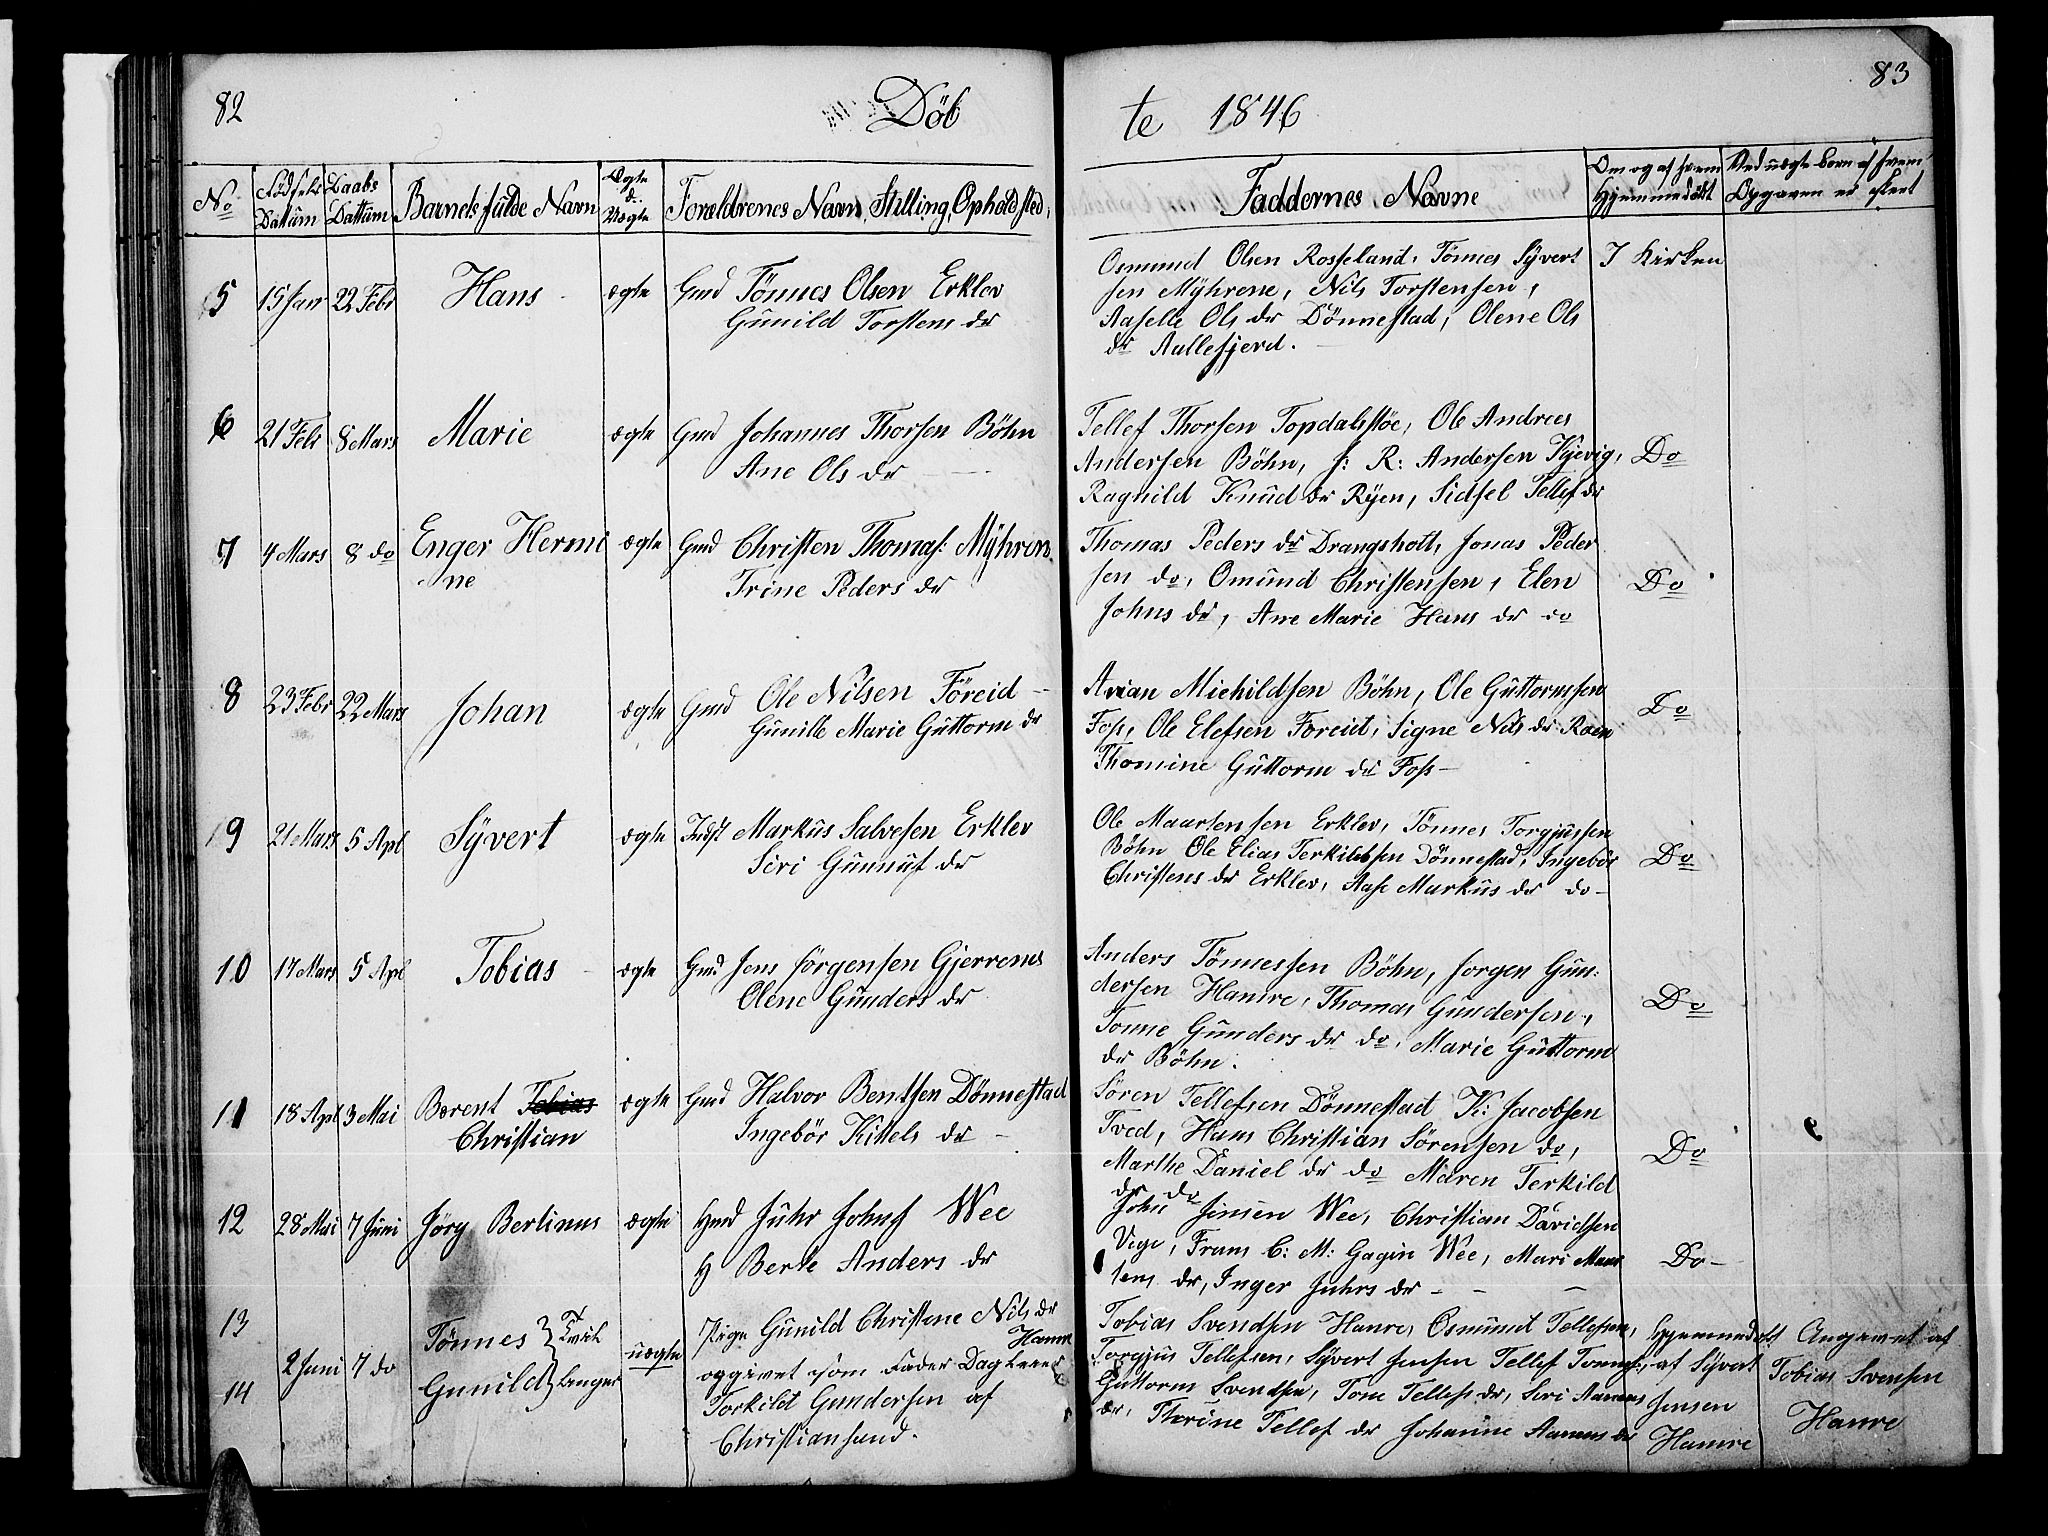 82
Döb
te 1846
83
No
Födsels Datum
Daabs Dattum
Barnets fulde Navn
Ægte el. Uægte
Forældrenes Navn, Stilling, Opholdsted,
Faddernes Navne
Om og af hvem Hjemmedöbt
Ved uægte born af hvem Opgaven er skeet
5 15 Jan 22 Febr Hans ægte Gmd Tönnes Olsen Erklev
Gunild Torstens dr
Osmund Olsen Rosseland, Tönnes Syvert
sen Myhrene, Nils Torstensen,
Aaselle Ols dr Dönnestad, Olene Ols
dr Aallefjerd.
I Kirken
6 21 Febr 8 Mars Marie ægte Gmd Johannes Thorsen Böhn
Ane Ols dr
Tellef Thorsen Topdalsköe, Ole Andreas
Andersen Böhn, J: R: Andersen Kjevig,
Ragnild Knud dr Ryen, Sidsel Tellef dr
Do
7 4 Mars 8 do Enger Hermi
ne
ægte Gmd Christen Thomas: Myhren
Trine Peders dr
Thomas Peders dr Drangsholt, Jonas Peder
sen do, Omund Christensen, Elen
Johns dr, Ane Marie Hans dr do
Do
8 23 Febr 22 Mars Johan ægte Gmd Ole Nilsen Föreid
Gunille Marie Guttorm dr
Arian Michildsen Böhn, Ole Guttormsen
Foss, Ole Elefsen Foreid, Signe Nils dr Roen
Thomine Guttorm dr Foss
Do
9 21 Mars 5 Apl Syvert ægte Indst Markus Salvesen Erklev
Siri Gunnuf dr
Ole Maartensen Erklev, Tönnes Torgjussen
Böhn Ole Elias Terkildsen Dönnestad, Ingebör
Christens dr Erklev, Aase Markus dr do
Do
10 17 Mars 5 Apl Tobias ægte Gmd Jens Jörgensen Gjerrenes
Olene Gunders dr
Anders Tönnessen Böhn, Jorgen Gun:
dersen Hamre, Thomas Gundersen,
Tonne Gunders dr do, Marie Guttorm
dr Böhn.
Do
11 18 Apl 3 Mai Berent Tobias
Christian
ægte Gmd Halvor Bentsen Dönnestad
Ingebör Kittels dr
Sören Tellefsen Dönnestad K: Jacobsen
Tved, Hans Christian Sörensen do,
Marthe Daniel dr do Maren Terkild
dr do
Do
12 28 Mai 7 Juni Jörg Berlinus ægte Hmd Juhr Johns Wee
H Berte Anders dr
John Jensen Wee, Christian Davidsen
Vige, Frans C: M: Gagin Wee, Mari Maar
tens dr, Inger Juhrs dr
Do
13
14
2 Juni 7 do Tönnes
Gunild
uægte Pige Gunild Christine Nils dr
Hamre
opgivet som Fader Dagleier
Torkild Gundersen af
Christiansand.
Tobias Svendsen Hamre, Osmund Tellefsen,
Torgjus Tellefsen, Syvert Jensen Tellef Tonnes:,
Guttorm Svendsen, Tone Tellefs dr, Siri Aanens
dr, Thrine Tellef dr Johanne Aanens dr
Hjemmedöbt
af Syvert
Jensen
Hamre
Angivet af
Tobias Svensen
Hamre